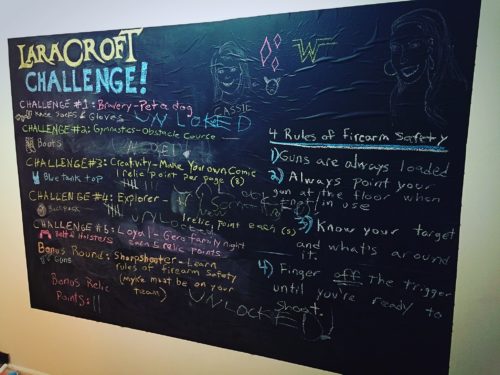 LARA CROFT
CHALLENGE!
CHALLENGE #1: Bravery - Pet a dog
& Gloves UNLOCKED
CLASSIC
CHALLENGE #2: Gymnastics - Obstacle Cource
Boots
CHALLENGE #3: Creativity - Make Your own Comic
Blue tank top 1 relic point per page (8)
CHALLENGE #4: Explorer -
Back Pack 1 relic point each (5)
CHALLENGE #5: Loyal - Game family night
Belt & Holsters Earn 5 relic points
Bonus Round: SharpShooter - Learn
Guns rules of firearm safety
(Myka must be on your
team)
UNLOCKED!
Bonus Relic
Points: ||
4 Rules of Firearm Safety
1) Guns are always loaded
2) Always point your
gun at the floor when
not in use
3) Know your target
and what's around
it.
4) Finger off the trigger
until you're ready to
shoot.